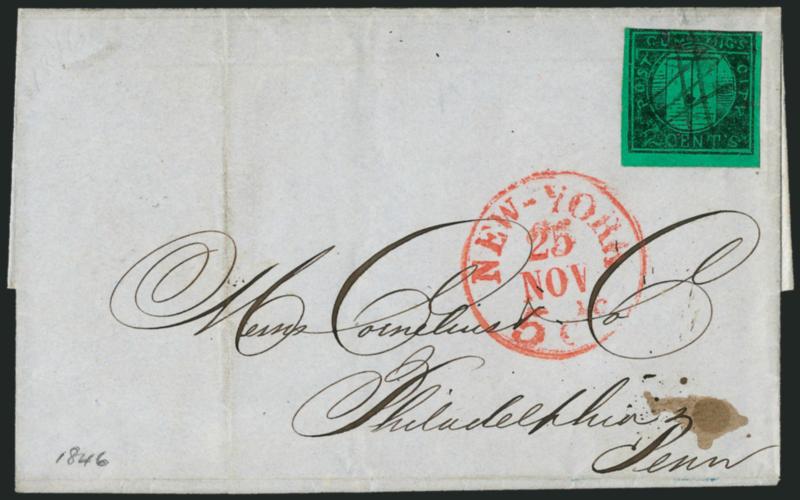 CUMMINGS
CITY
POST
2 CENTS
NEW-YORK
25
NOV
5 cts
Messrs Cornelius & Co
Philadelphia
Penn
1846